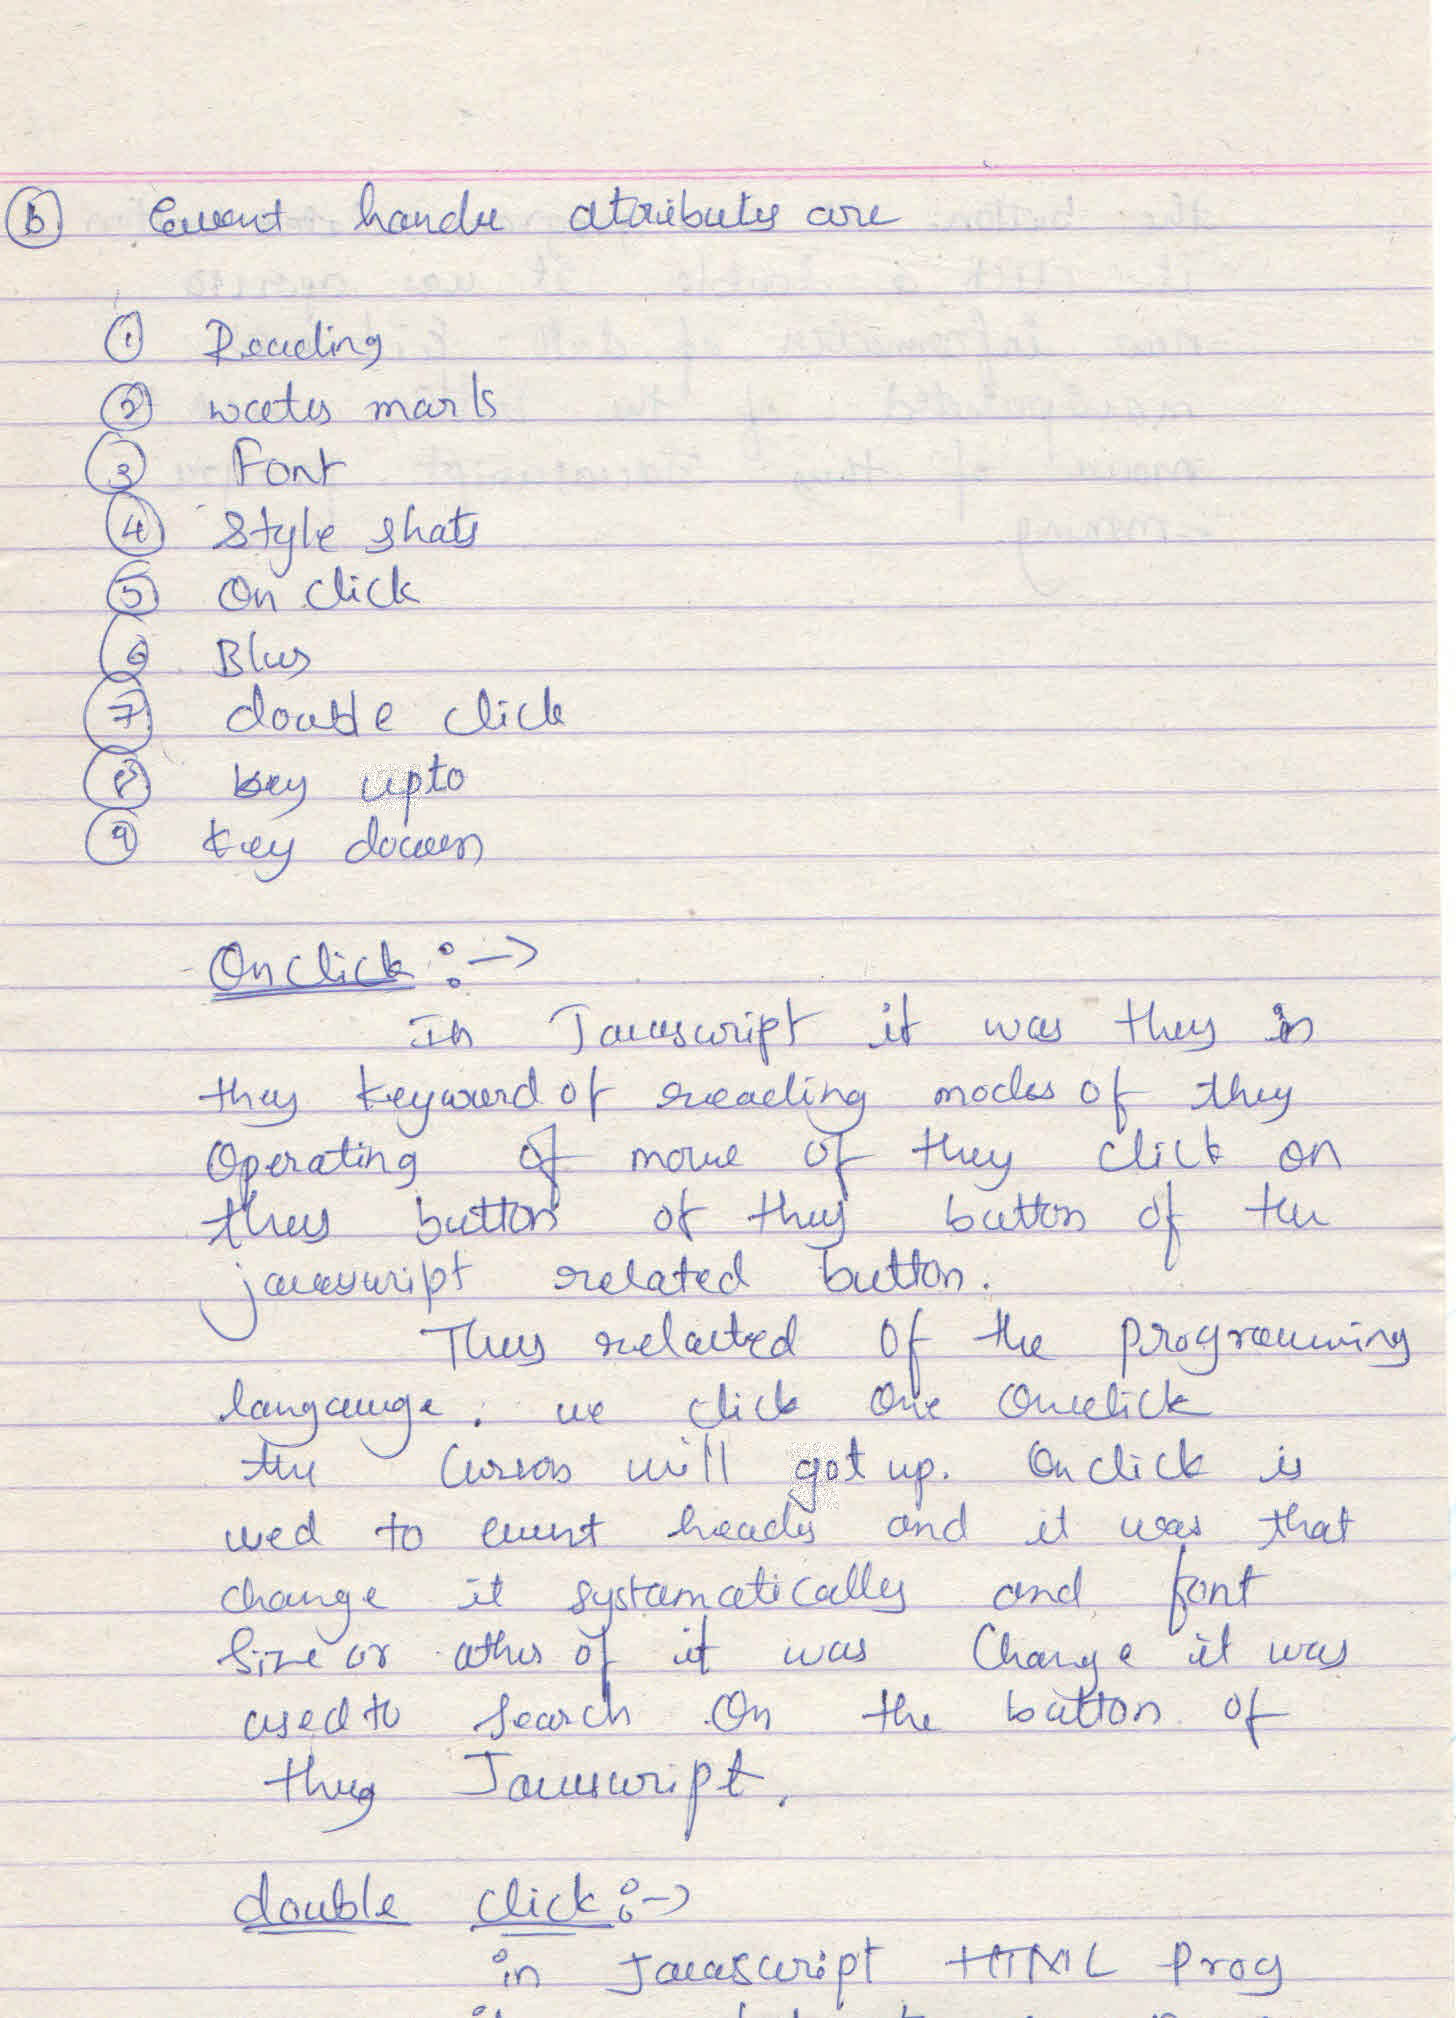 b Event handle atributes are
1 Reading
2 water marks
3 Font
4 Style shats
5 On click
6 Blur
7 double click
8 key upto
9 key down
On click :->
In Javascript it was they in
they keyword of reading modes of they
Operating of move of they click on
they button of they button of the
javascript related button.
Thus related of the programming
langauge. we click One Onclick
the Cursor will got up. On click is
used to event heads and it was that
change it systamatically and font
Size or other of it was Change it was
used to Search On the button of
they Javascript.
double click :->
in Javascript HTML Prog